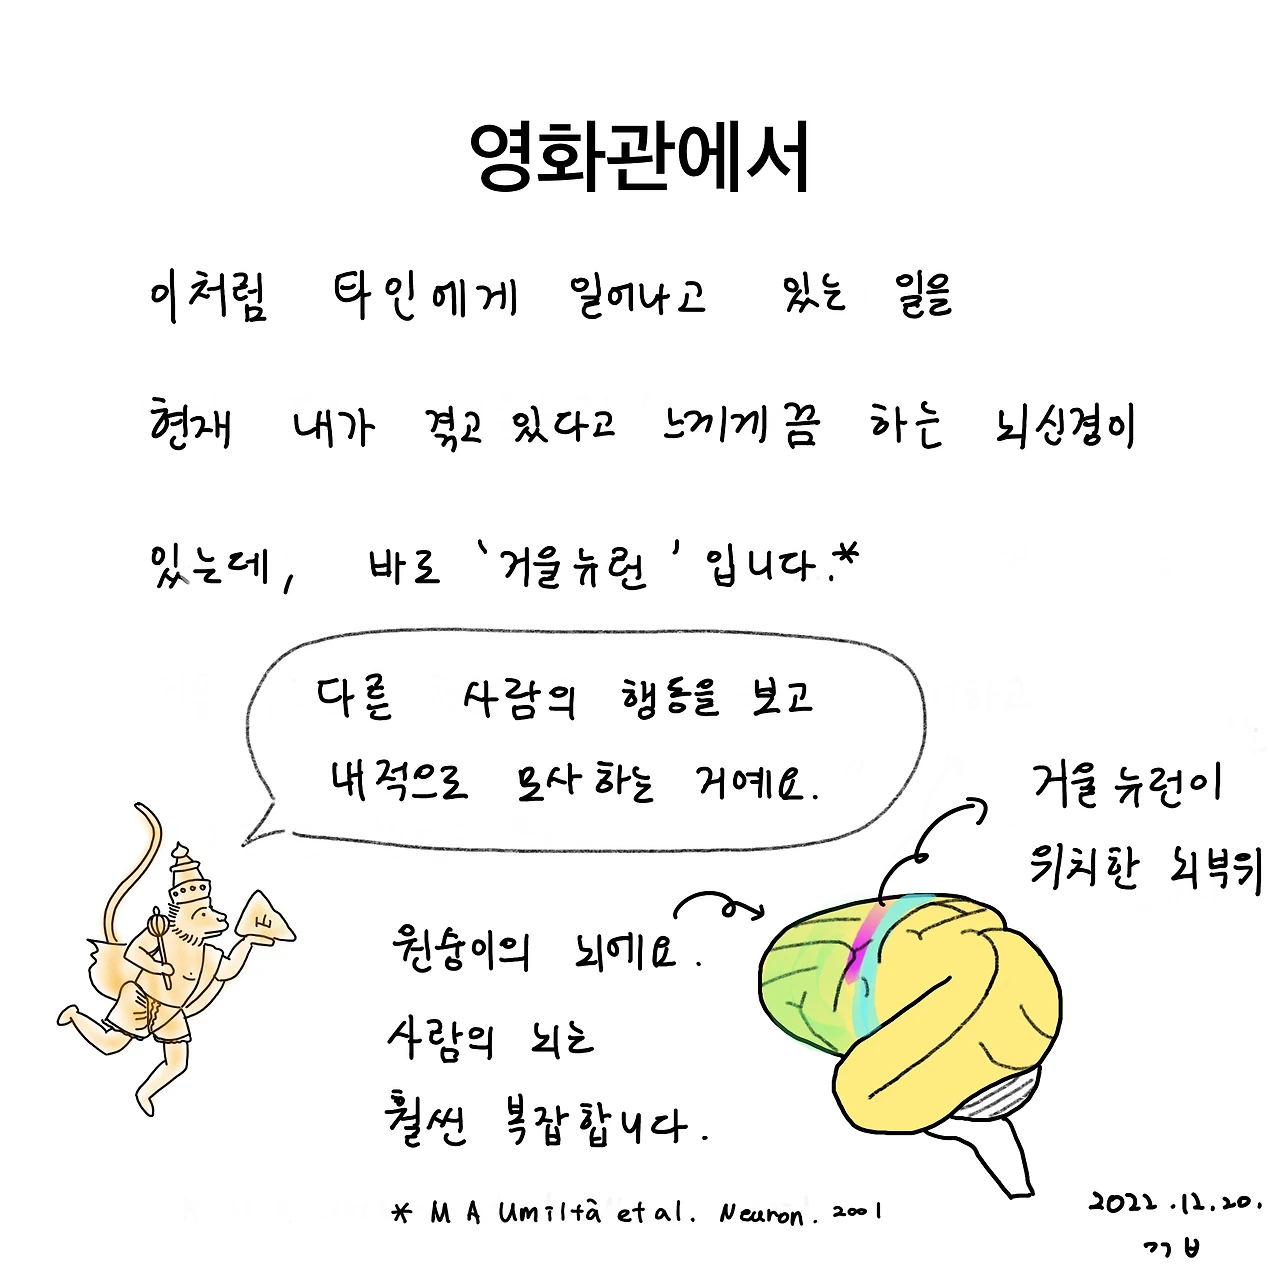 영화관에서
이처럼 타인에게 일어나고 있는 일을
현재 내가 겪고 있다고 느끼게끔 하는 뇌신경이
있는데, 바로 '거울뉴런'입니다.*
다른 사람의 행동을 보고
내적으로 모사하는 거예요.
거울뉴런이
위치한 뇌부위
원숭이의 뇌에요.
사람의 뇌는
훨씬 복잡합니다.
* M A Umiltà et al. Neuron. 2001
2022.12.20.